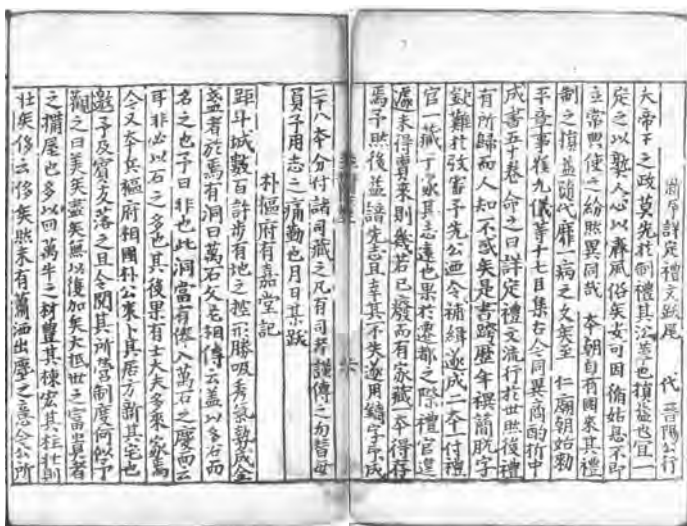 新序詳定禮文跋尾 代晉陽公行
夫帝王之政莫先於制禮其沿革也損益也宜一
定之以淑人心以齊風俗矣安可因循姑息不即
立常典使之紛然異同哉 本朝自有國來其禮
制之損益隨代靡一病之久矣至 仁廟朝始勑
平章事崔允儀等十七臣集古今同異商酌折中
成書五十卷命之曰詳定禮文流行於世然後禮
有所歸而人知不惑矣是書跨歷年禩簡脫字
缺難於攷審予先公迺令補緝遂成二本一付禮
官一藏于家其志遠也果於遷都之際禮官遑
遽未得賷來則幾若已廢而有家藏一本得存
焉予然後益諳先志且幸其不失遂用鑄字印成
二十八本分付諸司藏之凡有司者謹傳之勿替毋
負予用志之痛勤也月日某跋
朴樞府有嘉堂記
距斗城數百許步有地之控形勝吸秀氣勢成金
盞者於焉有洞曰萬石父老相傳云盖以多石而
名之也予曰非也此洞當有俸入萬石之慶而云
耳非必以石之多也其後果有士大夫多來家焉
今又本兵樞府相國朴公來卜其居方新其宅也
邀予及賓友落之且令閱其所營制度何似予
觀之曰美矣盡矣無以復加矣大抵世之富貴者
之搆屋也多以回萬牛之材豐其棟宏其柱壯則
壯矣侈云侈矣然未有蕭洒出塵之意今公所